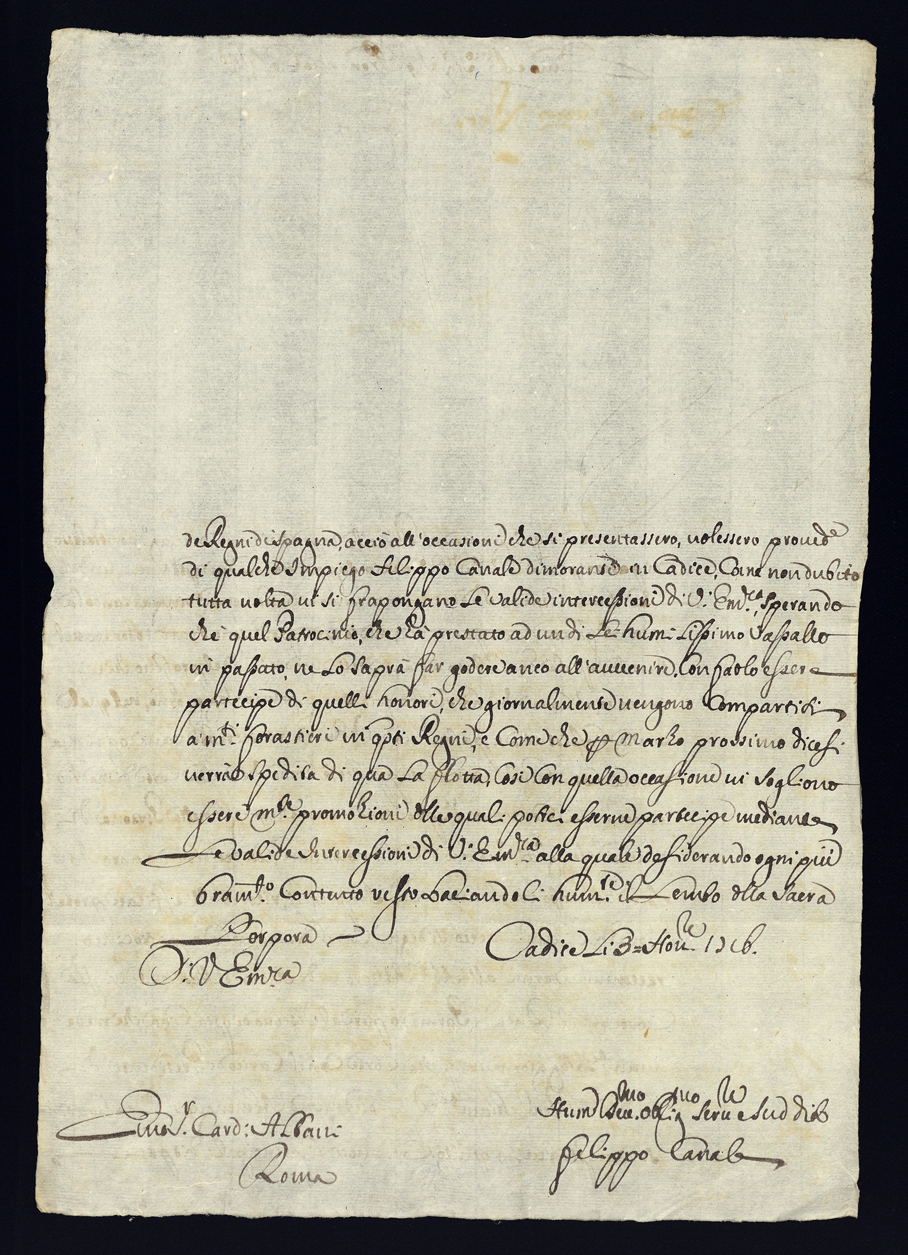 de Regni di Spagna, acciò all'occasioni che si presentassero, volessero proved.e
di qualche Impiego Filippo Canale dimorante in Cadice, Come non dubito
tutta volta vi si frapongano Le valide intercessioni di V. Em.za, Sperando
che quel Patrocinio, che hà prestato ad un di Lei humilissimo Vassallo
in passato, ne Lo Saprà far godere anco all'auuenire, Con farlo essere
partecipe di quelli honori, che giornalmente vengono Compartiti
a m.ti forastieri in q.sti Regni, e Come che p Marzo prossimo dicesi
verrà spedita di qua La flotta, Cosi Con quella occasione vi Sogliono
essere m.te promozioni dlle quali potrei esserne partecipe mediante
Le valide Intercessioni di V. Em.za alla quale desiderando ogni più
bram.to Contento resto baciandoli hum.te il Lembo dlla Sacra
Porpora
Di V Em.za
Cadice Li 3 = Nov.re 1716.
Em.o Sr. Card: Albani
Roma
Hum.mo Dev. Oblig.mo Serv.re e Suddito
Filippo Canale